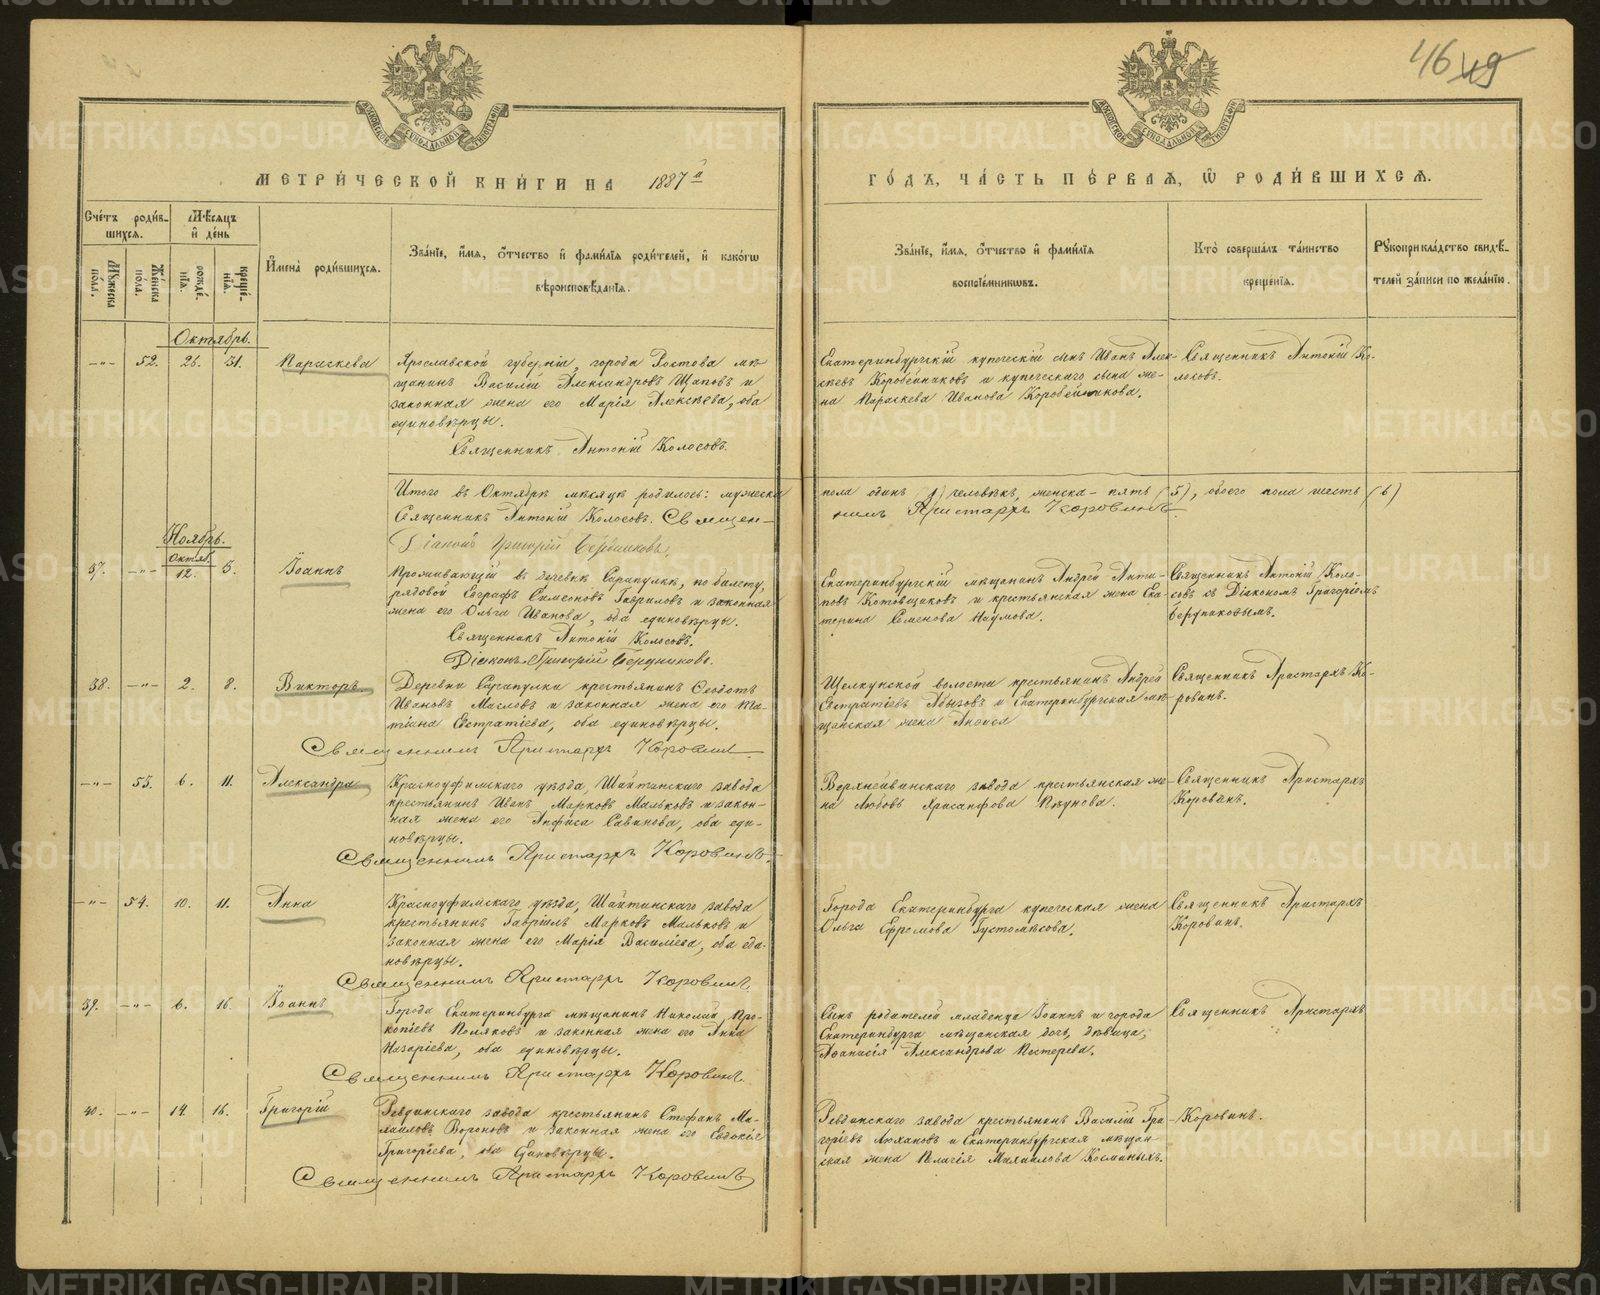 46 49
МЕТРИ́ЧЕСКОЙ КНИ́ГИ НА 1887 й
ГО́ДЪ, ЧА́СТЬ ПЕ́РВАЯ, Ѿ РОДИ́ВШИХСЯ.
Сче́тъ роди́вшихся.
Му́жеска по́ла.
Же́нска по́ла.
Мѣ́сяцъ и де́нь
рожде́нїя.
креще́нїя.
И҆мена̀ роди́вшихся.
Зва́нїе, и҆́мя, ѻ҆́тчество и҆ фами́лїя роди́телей, и҆ како́гѡ вѣроисповѣ́данїя.
Зва́нїе, и҆́мя, ѻ҆́тчество и҆ фами́лїя воспрїе́мникѡвъ.
Кто̀ соверша́лъ та́инство креще́нїя.
Рꙋкоприкла́дство свидѣ́телей за́писи по жела́нїю.
Октябрь.
-"- 52. 26. 31. Параскева
Ярославской губерніи, города Ростова мѣ-
щанинъ Василій Александровъ Щаповъ и
законная жена его Марія Алексѣева, оба
единовѣрцы.
Священникъ Антоній Колосовъ.
Екатеринбургскій купеческій сынъ Иванъ Алек-
сѣевъ Коробейниковъ и купеческаго сына же-
на Параскева Иванова Коробейникова.
Священникъ Антоній Ко-
лосовъ.
Итого въ Октябрѣ мѣсяцѣ родилось: мужеска пола одинъ (1) человѣкъ, женска - пять (5), обоего пола шесть (6)
Священникъ Антоній Колосовъ. Священ-
никъ Аристархъ Коровинъ.
Діаконъ Григорій Бердниковъ.
Ноябрь.
Октяб.
37. -"- 12. 5. Іоаннъ
Проживающій въ деревнѣ Сарапулкѣ, по билету,
рядовой Евграфъ Симеоновъ Гавриловъ и законная
жена его Ольга Иванова, оба единовѣрцы.
Священникъ Антоній Колосовъ.
Діаконъ Григорій Бердниковъ.
Екатеринбургскій мѣщанинъ Андрей Анти-
повъ Котовщиковъ и крестьянская жена Ека-
терина Семенова Наумова.
Священникъ Антоній Коло-
совъ съ Діакономъ Григоріемъ
Бердниковымъ.
38. -"- 2. 8. Викторъ
Деревни Сарапулки крестьянинъ Ѳеодотъ
Ивановъ Масловъ и законная жена его Та-
тіана Евстратіева, оба единовѣрцы.
Священникъ Аристархъ Коровинъ
Щелкунской волости крестьянинъ Андрей
Евстратіевъ Абызовъ и Екатеринбургская мѣ-
щанская жена Анѳиса
Священникъ Аристархъ Ко-
ровинъ.
-"- 53. 6. 11. Александра
Красноуфимскаго уѣзда, Шайтанскаго завода
крестьянинъ Иванъ Марковъ Мальковъ и закон-
ная жена его Анфиса Савинова, оба еди-
новѣрцы.
Священникъ Аристархъ Коровинъ.
Верхнейвинскаго завода крестьянская же-
на Любовь Хрисанфова
Священникъ Аристархъ
Коровинъ.
-"- 54. 10. 11. Анна
Красноуфимскаго уѣзда, Шайтинскаго завода
крестьянинъ Гавріилъ Марковъ Мальковъ и
законная жена его Марія Василіева, оба еди-
новѣрцы.
Священникъ Аристархъ Коровинъ.
Города Екатеринбурга купеческая жена
Ольга Ефремова Густомѣсова.
Священникъ Аристархъ
Коровинъ.
39. -"- 6. 16. Іоаннъ
Города Екатеринбурга мѣщанинъ Николай Про-
копіевъ Поляковъ и законная жена его Анна
Назаріева, оба единовѣрцы.
Священникъ Аристархъ Коровинъ.
Сынъ родителей младенца Іоаннъ и города
Екатеринбурга мѣщанская дочь, дѣвица,
Аѳанасія Александрова Пестерева.
Священникъ Аристархъ
40. -"- 14. 16. Григорій
Ревдинскаго завода крестьянинъ Стефанъ Ма-
маиловъ Вороновъ и законная жена его Евдокія
Григоріева, оба единовѣрцы.
Священникъ Аристархъ Коровинъ
Ревдинскаго завода крестьянинъ Василій Гри-
горіевъ Люхановъ и Екатеринбургская мѣщан-
ская жена Пелагія Михаилова Косминыхъ.
Коровинъ.
METRIKI.GASO-URAL.RU